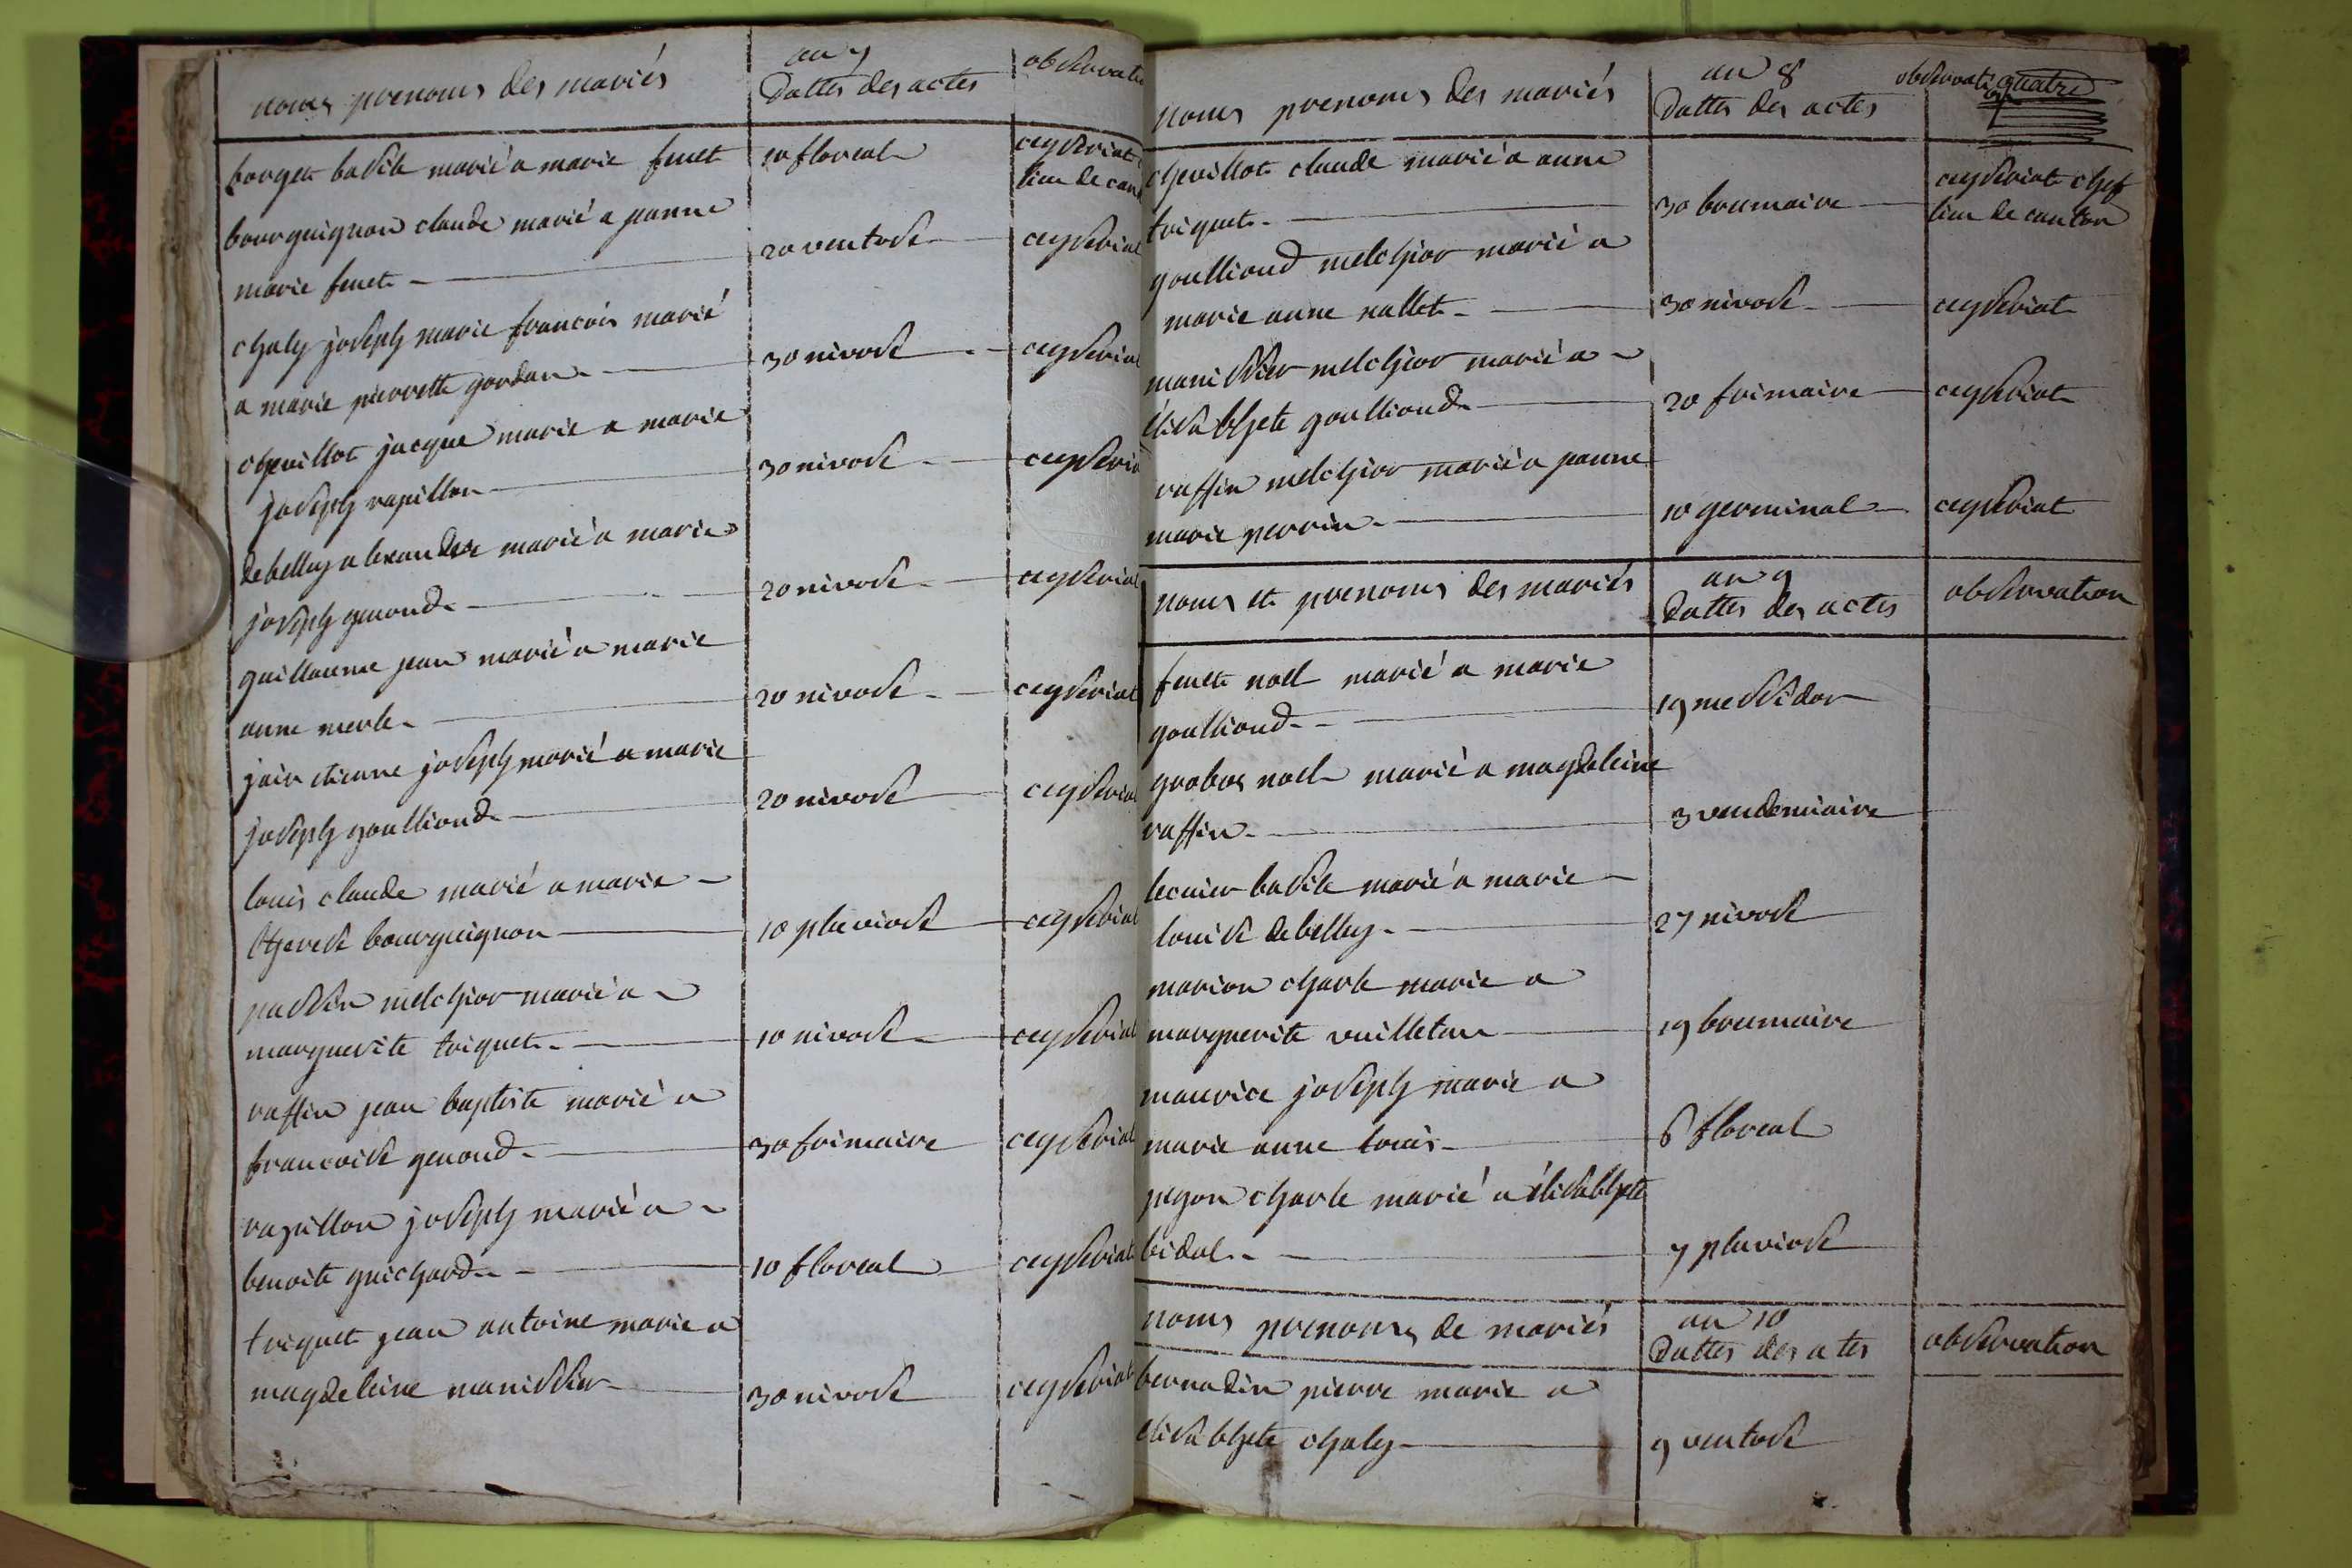 noms prenoms des mariés
an 7
dattes des actes
observati
borget basile marié a marie fenet 10 floreal ceyseriat
lieu de can
bourguignon claude marié a janne
marie fenet 20 ventose ceyseriat
chaley joseph marie francois marié
a marie pierrette gordan 30 nivose ceyseriat
chevillot jacque marie a marie
joseph rapillon 30 nivose ceyseria
debelley alexandre marié a marie
joseph genoud 20 nivose ceyseriat
guillaume jean marié a marie
anne merle 20 nivose ceyseriat
jair etienne joseph marié a marie
joseph goullioud 20 nivose ceyseriat
louis claude marié a marie
therese bourguignon 10 pluviose ceyseriat
passin melchior marié a
marguerite triquet 10 nivose ceyseriat
raffin jean baptiste marié a
francoise genoud 30 frimaire ceyseriat
rapillon joseph marié a
benoite guichard 10 floreal ceyseriat
triquet jean antoine marie a
magdeleine manissier 30 nivose ceyseriat
noms prenoms des mariés
an 8
dattes des actes
observati quatre
chevillot claude marié a anne
triquet 30 brumaire ceyseriat chef
lieu de canton
goullioud melchior marié a
marie anne nallet 30 nivose ceyseriat
manissier melchior marié a
élisabhete goullioud 20 frimaire ceyseriat
raffin melchior marié a janne
marie perrin 10 germinal ceyseriat
noms et prenoms des mariés
an 9
dattes des actes
observation
fenet noel marié a marie
goullioud 19 messidor
grobos noel marié a magdeleine
raffin 3 vendemiaire
lecuier basile marié a marie
louise debelley 27 nivose
marion charle marie a
marguerite vuilleton 19 brumaire
maurice joseph marie a
marie anne louis 6 floreal
pegon charle marié a élisabhete
bidal 7 pluviose
noms prenoms de mariés
an 10
dattes des actes
observation
bernadin pierre marie a
elisabhete chaley 9 ventose